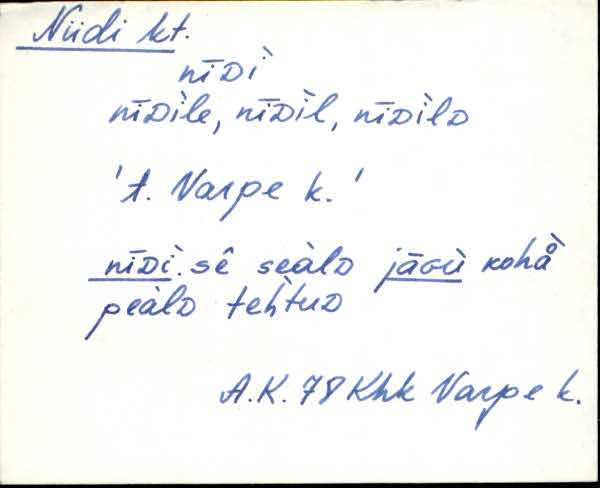 Niidi kt.
nīᴅì
nīᴅìle, nīᴅìl, nīᴅìlᴅ
't. Varpe k.'
nīᴅì. sê seàlᴅ jāɢù kohå̀
peàlᴅ tehtuᴅ
A.K. 78 Khk Varpe k.